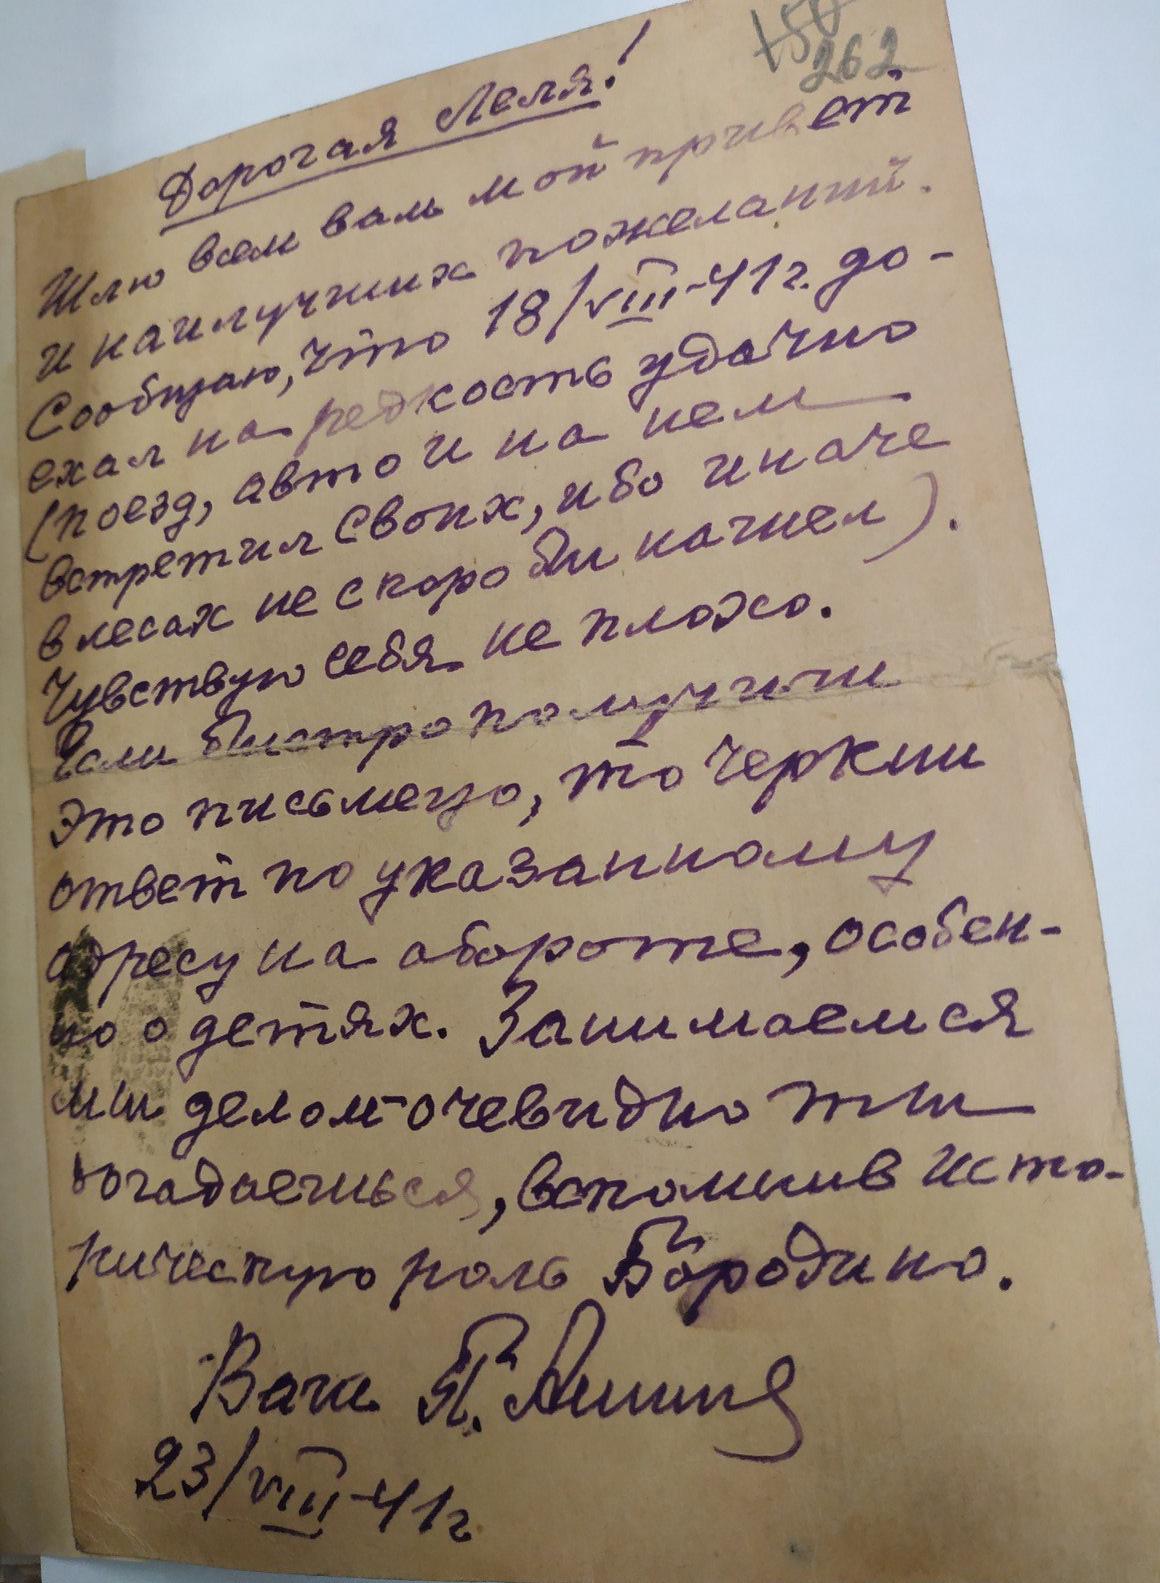 262
Дорогая Леля!
Шлю всем вам мой привет
и наилучших пожеланий.
Сообщаю, что 18/VIII-41г. до-
ехал на редкость удачно
(поезд, авто и на нем
встретил своих, ибо иначе
в лесах не скоро бы нашел).
Чувствую себя не плохо.
Если быстро получиш
это письмецо, то черкни
ответ по указанному
адресу на обороте, особен-
но о детях. Занимаемся
мы делом - очевидно ты
догадаешься, вспомнив исто-
рическую роль Бородино.
Ваш П.
23/VIII-41г